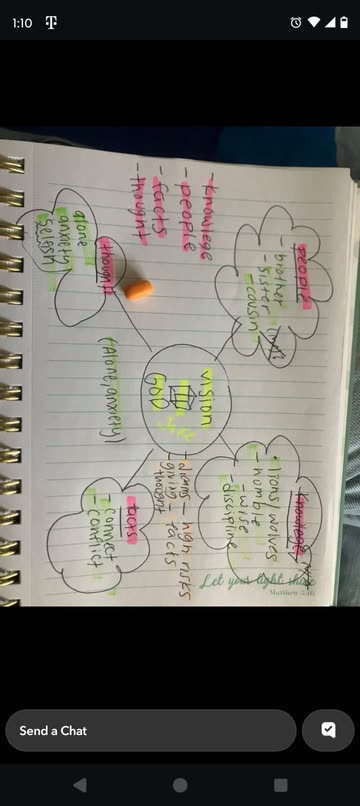 1:10
Let your light shine
Matthew 5:16
people
-brother
-sister
-cousin
knowledge
lions/wolves
-homble
wise
-discipline
-knowlege
-people
-facts
-thought
vision
GOD
- high risks
giving - facts
thought
thought
alone
anxiety
(Alone/anxiety)
facts
-connect
-conflict
Send a Chat